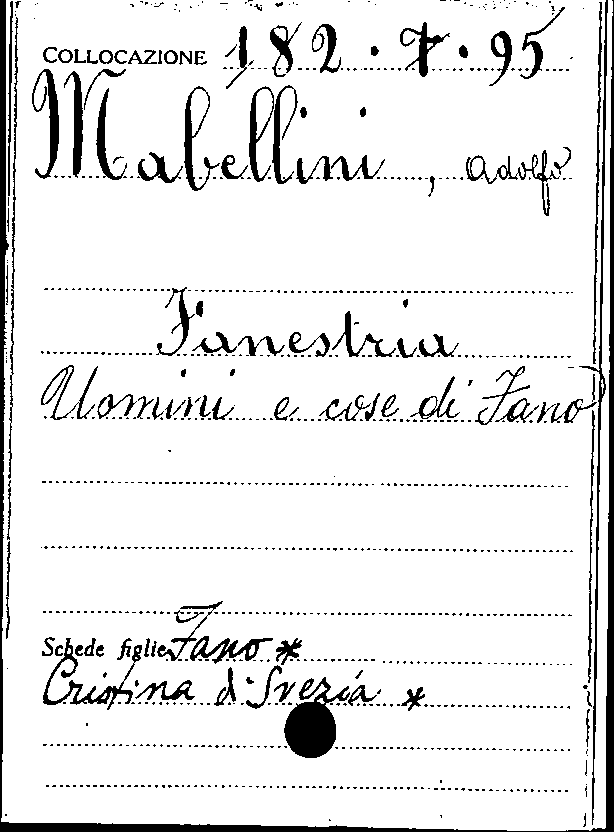 COLLOCAZIONE 182.7.95
Mabellini, Adolfo
Fanestria
Uomini e cose di Fano
Schede figlie Fano *
Cristina di Svezia *